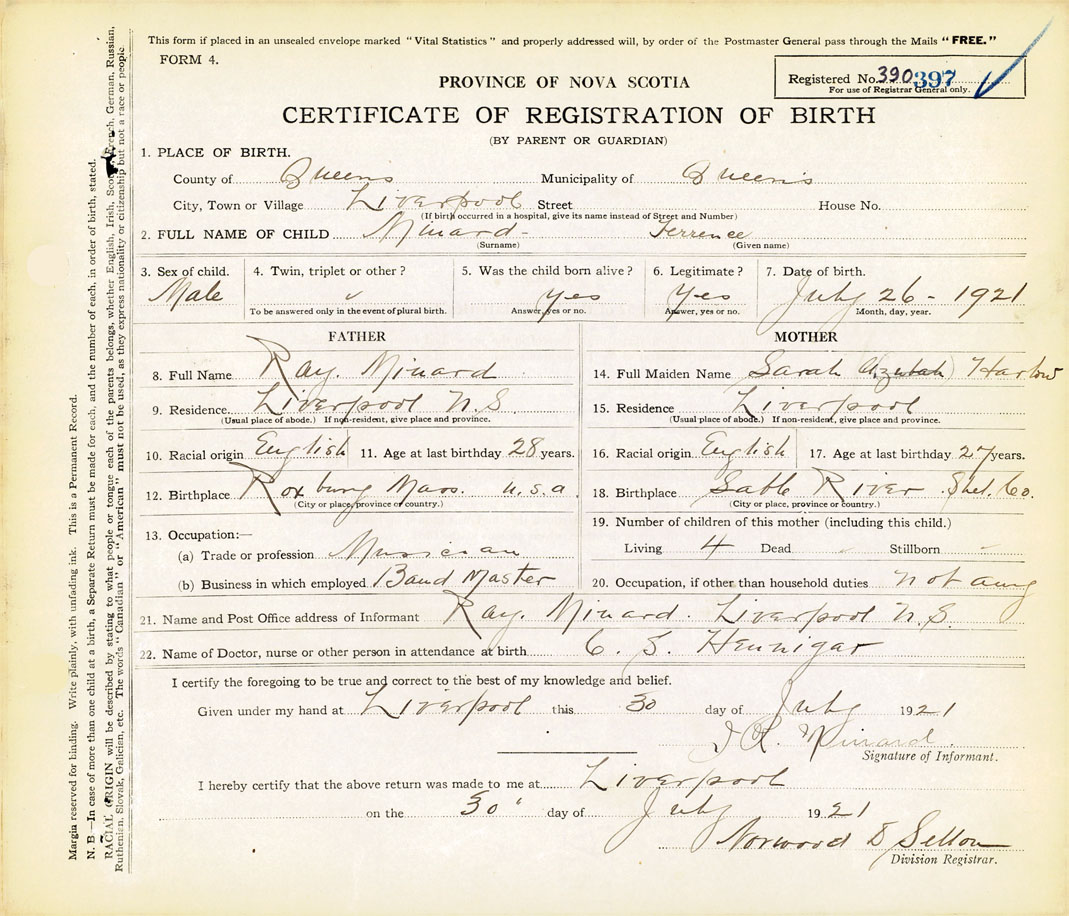 This form if placed in an unsealed envelope marked "Vital Statistics" and properly addressed will, by order of the Postmaster General pass through the Mails "FREE."
FORM 4.
Registered No. 390 397
For use of Registrar General only.
PROVINCE OF NOVA SCOTIA
CERTIFICATE OF REGISTRATION OF BIRTH
(BY PARENT OR GUARDIAN)
1. PLACE OF BIRTH.
County of Queens Municipality of Queen's
City, Town or Village Liverpool Street House No.
(If birth occurred in a hospital, give its name instead of Street and Number)
2. FULL NAME OF CHILD Minard - Terrence
(Surname) (Given name)
3. Sex of child. 4. Twin, triplet or other? 5. Was the child born alive? 6. Legitimate? 7. Date of birth.
Male Yes Yes July 26 - 1921
To be answered only in the event of plural birth. Answer, yes or no. Answer, yes or no. Month, day, year.
FATHER
8. Full Name Ray. Minard
9. Residence. Liverpool N.S.
(Usual place of abode.) If non-resident, give place and province.
10. Racial origin English 11. Age at last birthday 28 years.
12. Birthplace Roxbury Mass. U.S.A.
(City or place, province or country.)
13. Occupation:—
(a) Trade or profession Musician
(b) Business in which employed Band Master
MOTHER
14. Full Maiden Name Sarah Harlow
15. Residence Liverpool
(Usual place of abode.) If non-resident, give place and province.
16. Racial origin English 17. Age at last birthday 27 years.
18. Birthplace Sable River Shel. Co.
(City or place, province or country.)
19. Number of children of this mother (including this child.)
Living 4 Dead - Stillborn -
20. Occupation, if other than household duties not any
21. Name and Post Office address of Informant Ray. Minard. Liverpool N.S.
22. Name of Doctor, nurse or other person in attendance at birth C. S. Hennigar
I certify the foregoing to be true and correct to the best of my knowledge and belief.
Given under my hand at Liverpool this 30 day of July 1921
Minard.
Signature of Informant.
I hereby certify that the above return was made to me at Liverpool
on the 30 day of July 1921
Norwood
Division Registrar.
Margin reserved for binding. Write plainly, with unfading ink. This is a Permanent Record.
N. B.—In case of more than one child at a birth, a Separate Return must be made for each, and the number of each, in order of birth, stated.
RACIAL ORIGIN will be described by stating to what people or tongue each of the parents belongs, whether English, Irish, Scotch, French, German, Russian,
Ruthenian, Slovak, Galician, etc. The words "Canadian" or "American" must not be used, as they express nationality or citizenship but not a race or people.